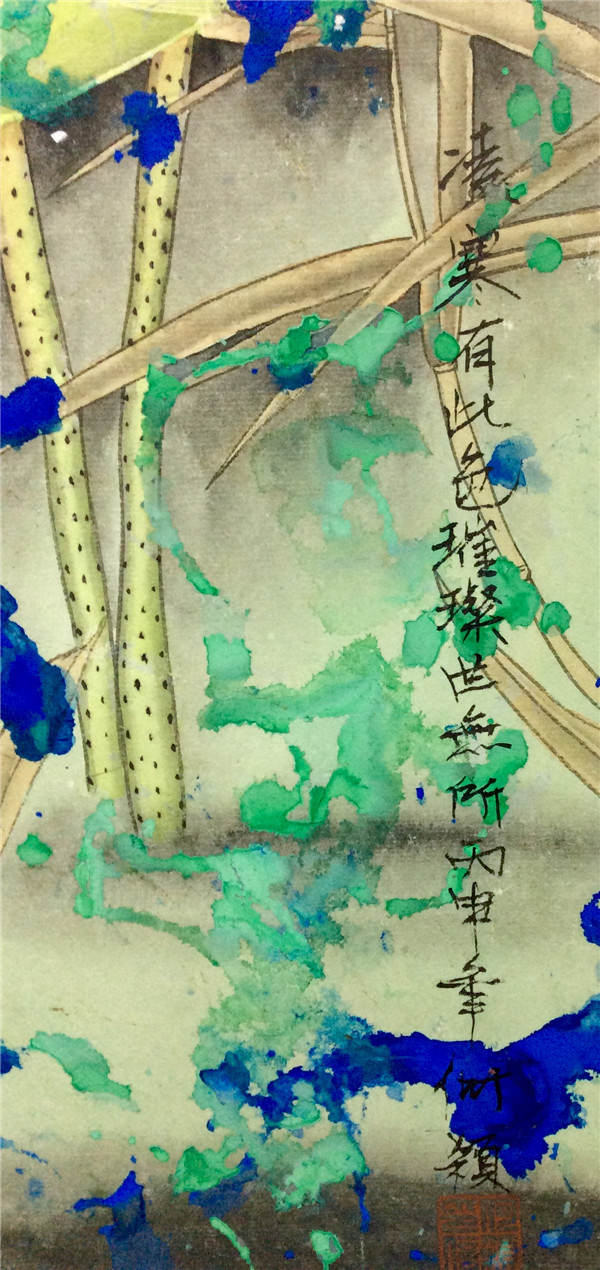 凌寒有此色璀璨世無所丙申年俶穎